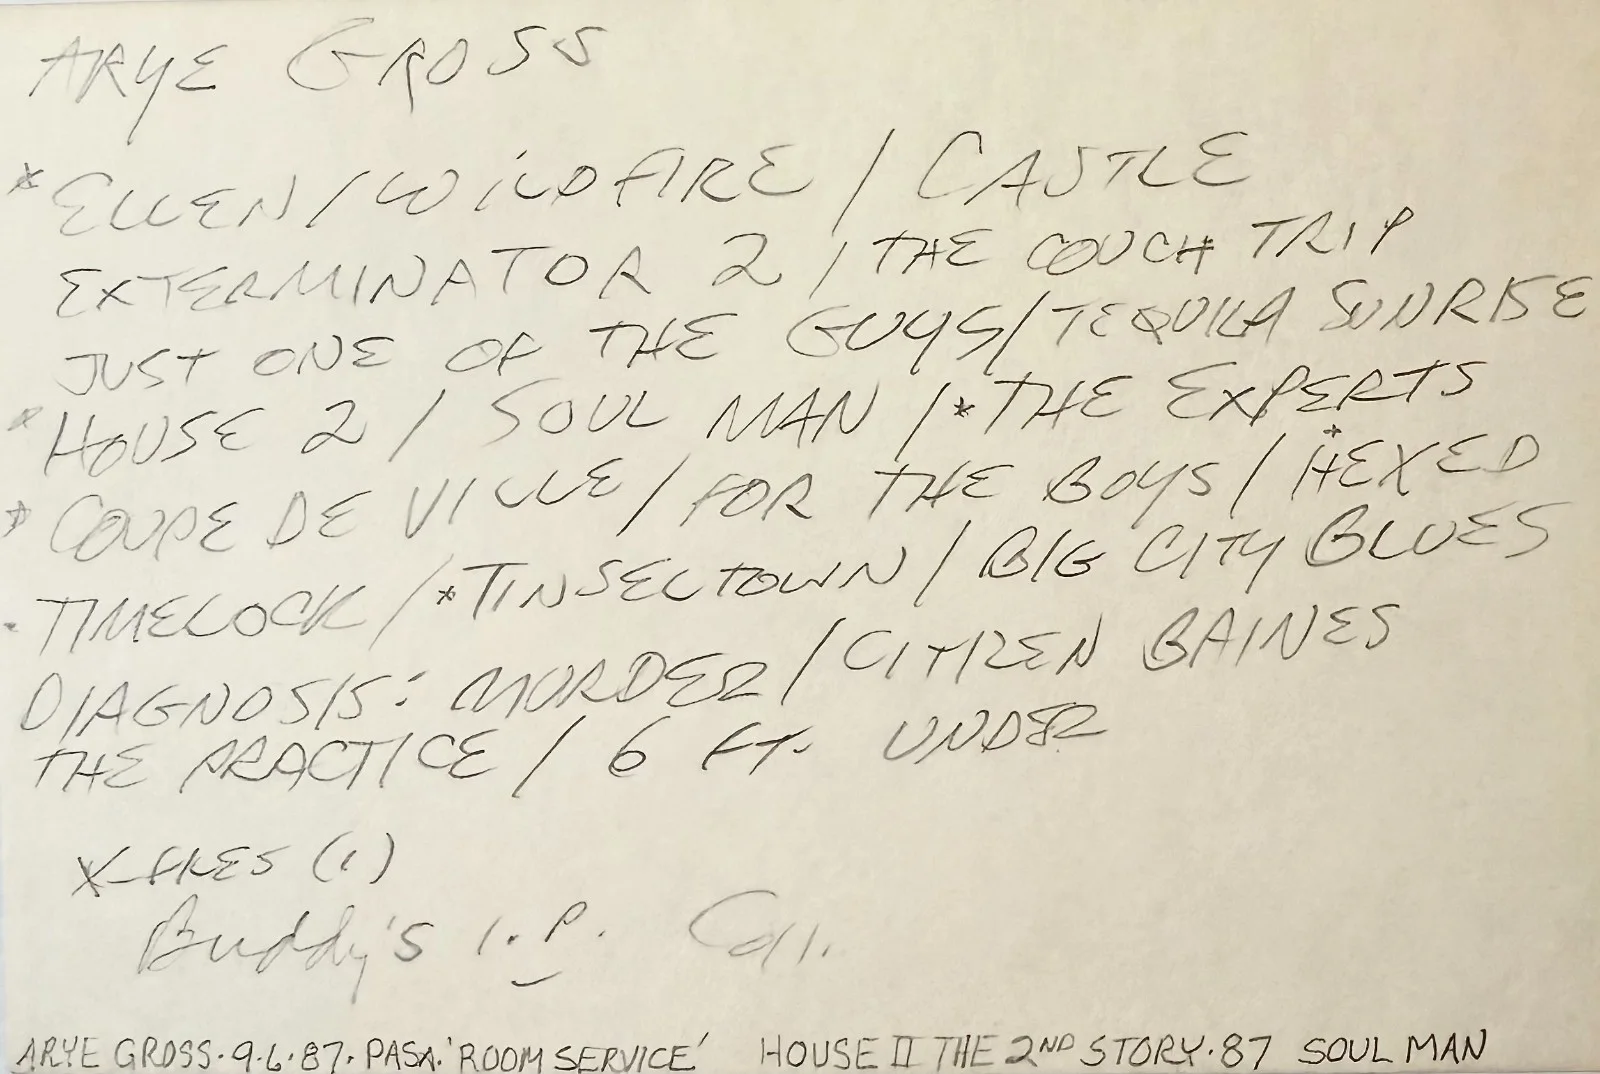 ARYE GROSS
* ELLEN / WILDFIRE / CASTLE
EXTERMINATOR 2 / THE COUCH TRIP
JUST ONE OF THE GUYS / TEQUILA SUNRISE
* HOUSE 2 / SOUL MAN / * THE EXPERTS
* COUPE DE VILLE / FOR THE BOYS / * HEXED
- TIMELOCK / * TINSELTOWN / BIG CITY BLUES
DIAGNOSIS: MURDER / CITIZEN BAINES
THE PRACTICE / 6 FT. UNDER
X-FILES (1)
Buddy's I.P. Coll.
ARYE GROSS · 9·6·87 · PASA. 'ROOM SERVICE' HOUSE II THE 2ND STORY · 87 SOUL MAN